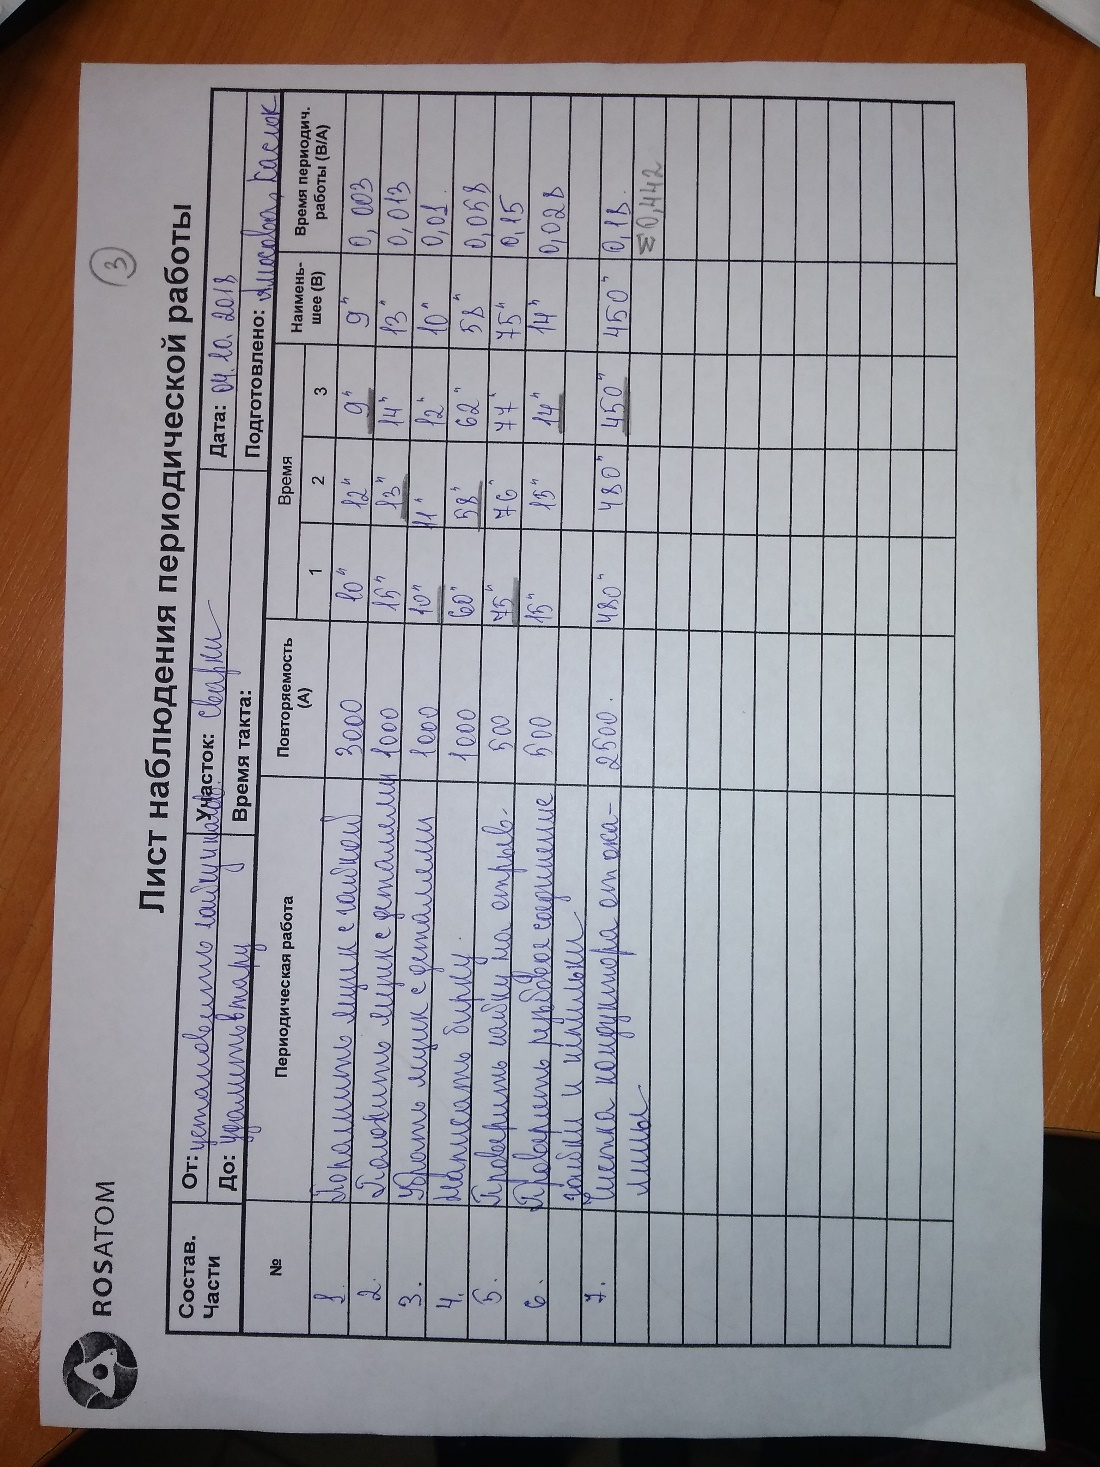 3
ROSATOM
Лист наблюдения периодической работы
Состав. Части
От: установить гайку
Участок: сварки
Дата: 04.10.2018
До: удалить в тару
Время такта:
Подготовлено:
№ Периодическая работа Повторяемость (А) Время Наимень-шее (В) Время периодич. работы (В/А)
1 2 3
1. ящик с гайкой 3000 10" 12" 9" 9" 0,003
2. Положить ящик с деталями 1000 15" 13" 14" 13" 0,013
3. Убрать ящик с деталями 1000 10" 11" 12" 10" 0,01.
4. Написать бирку. 1000 60" 58" 62" 58" 0,058
5. Проверить гайку на отрыв. 500 75" 76" 77" 75" 0,15
6. Проверить резьбовое соединение 500 15" 15" 14" 14" 0,028
гайки и шпильки
7. Чистка кондуктора от ока- 2500. 480" 480" 450" 450" 0,18.
лины Σ0,442